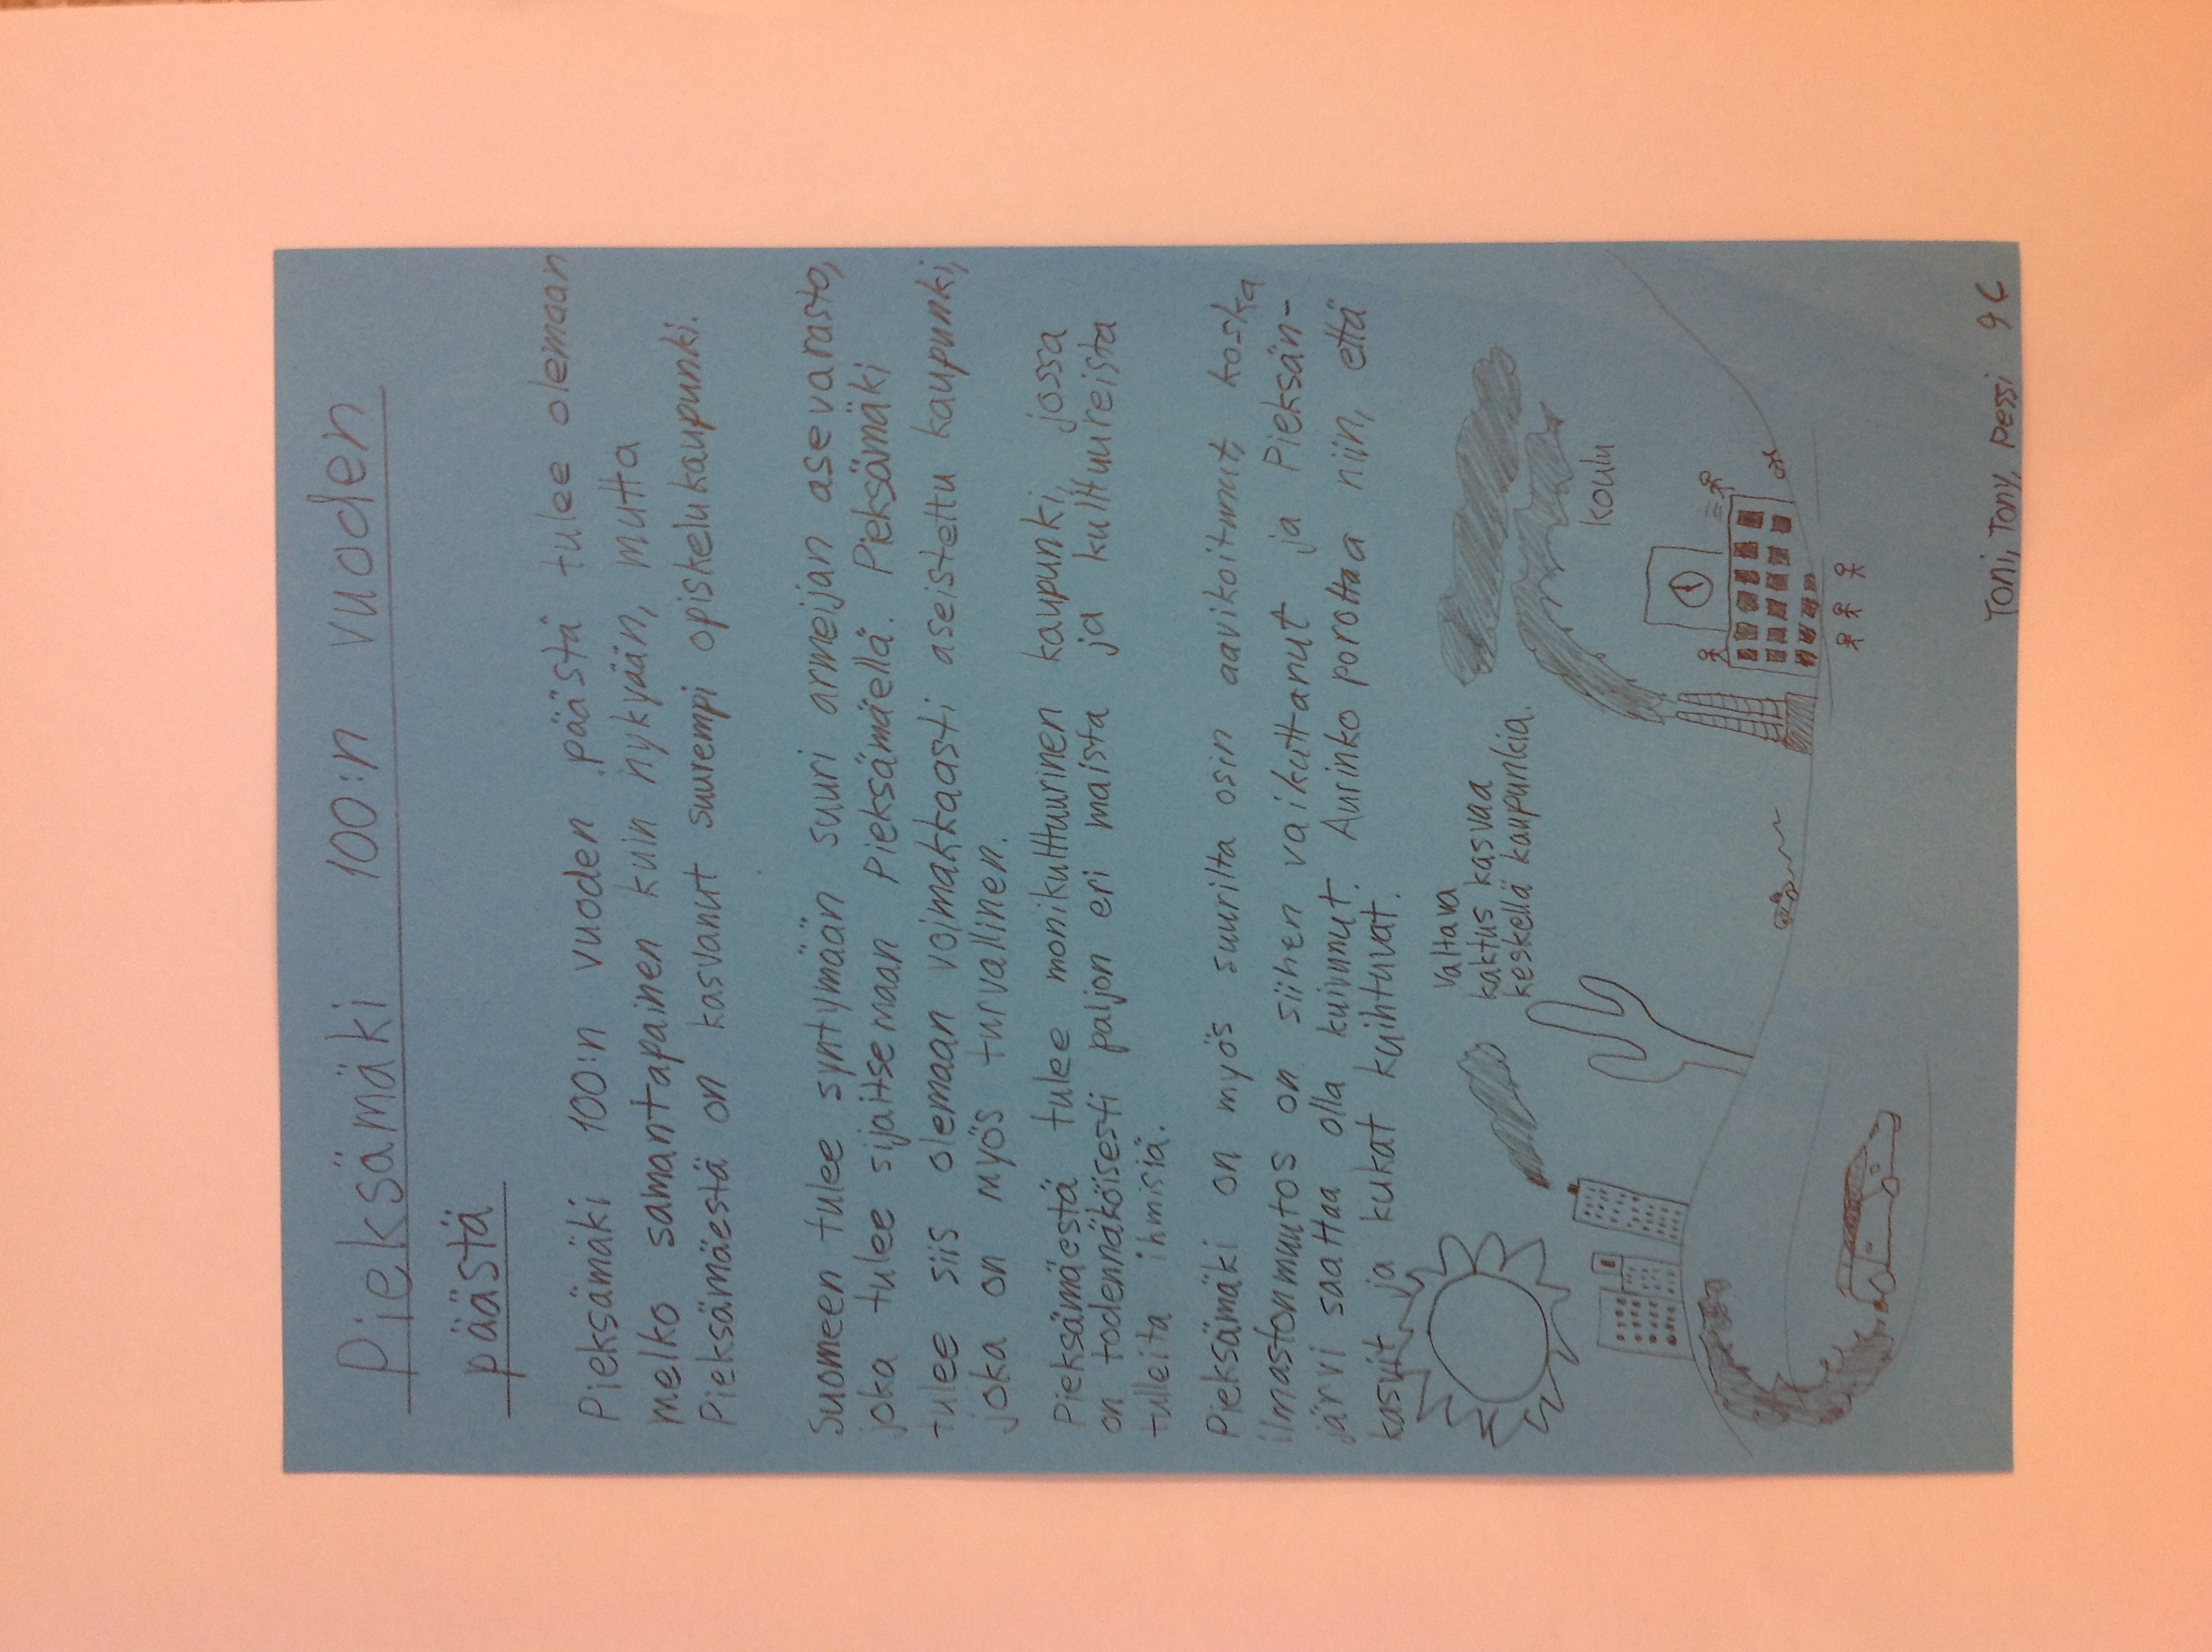 Pieksämäki 100:n vuoden
päästä
Pieksämäki 100:n vuoden päästä tulee olemaan
melko samantapainen kuin nykyään, mutta
Pieksämäestä on kasvanut suurempi opiskelukaupunki.
Suomeen tulee syntymään suuri armeijan asevarasto,
joka tulee sijaitsemaan Pieksämäellä. Pieksämäki
tulee siis olemaan voimakkaasti aseistettu kaupunki,
joka on myös turvallinen.
Pieksämäestä tulee monikulttuurinen kaupunki, jossa
on todennäköisesti paljon eri maista ja kulttuureista
tulleita ihmisiä.
Pieksämäki on myös suurilta osin aavikoitunut, koska
ilmastonmuutos on siihen vaikuttanut ja Pieksän-
järvi saattaa olla kuivunut. Aurinko porottaa niin, että
kasvit ja kukat kuihtuvat.
Valtava
kaktus kasvaa
keskellä kaupunkia.
koulu
Toni, Tony, Pessi 9C